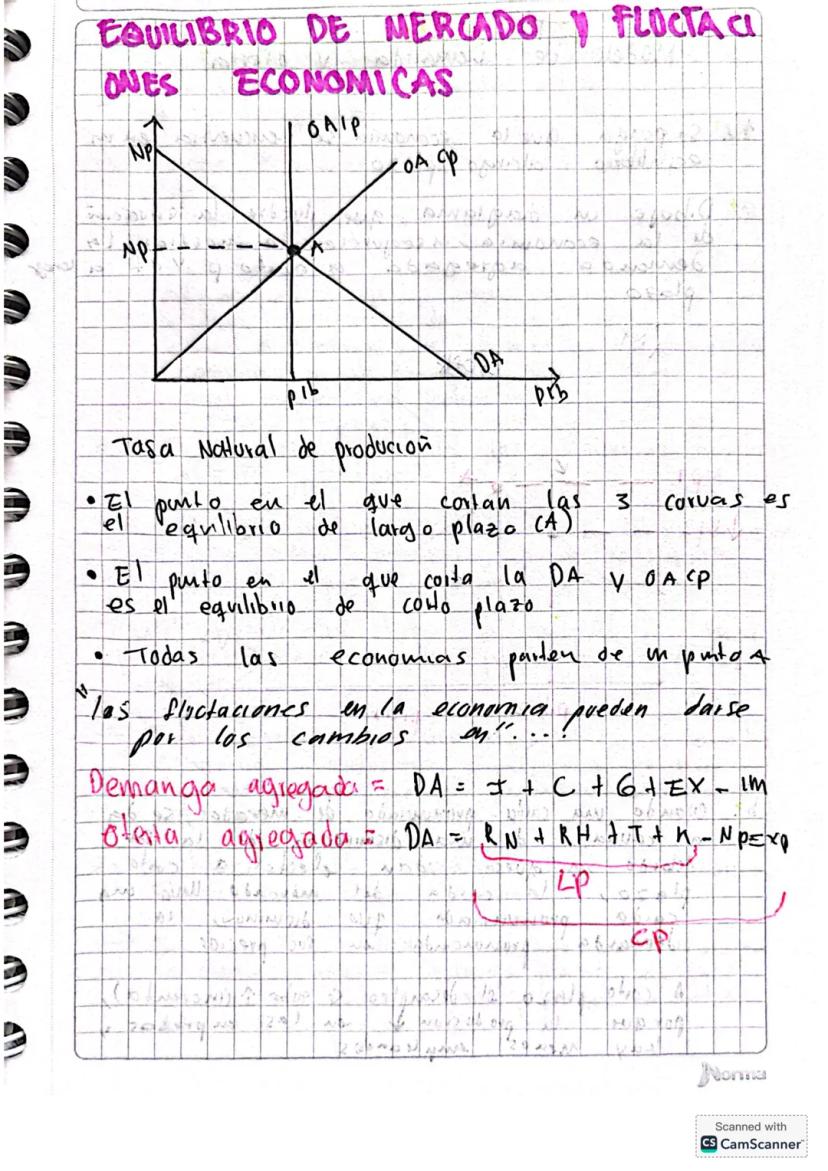 EQUILIBRIO DE MERCADO Y FLUCTACI
ONES ECONOMICAS
OAlp
OA cp
Np
Np
A
DA
pib
prb
Tasa Natural de producioñ
• El punto en el que cortan las 3 corvas es
el equilibrio de largo plazo (A)
• El punto en el que corta la DA y OA CP
es el equilibrio de corto plazo
• Todas las economias parten de un punto A
"las fluctaciones en la economia pueden darse
por los cambios en"...!
Demanga agregada = DA = I + C + G + EX - IM
Oferta agregada = DA = RN + RH + T + K - NpExp
LP
CP
Norma
Scanned with
CS CamScanner